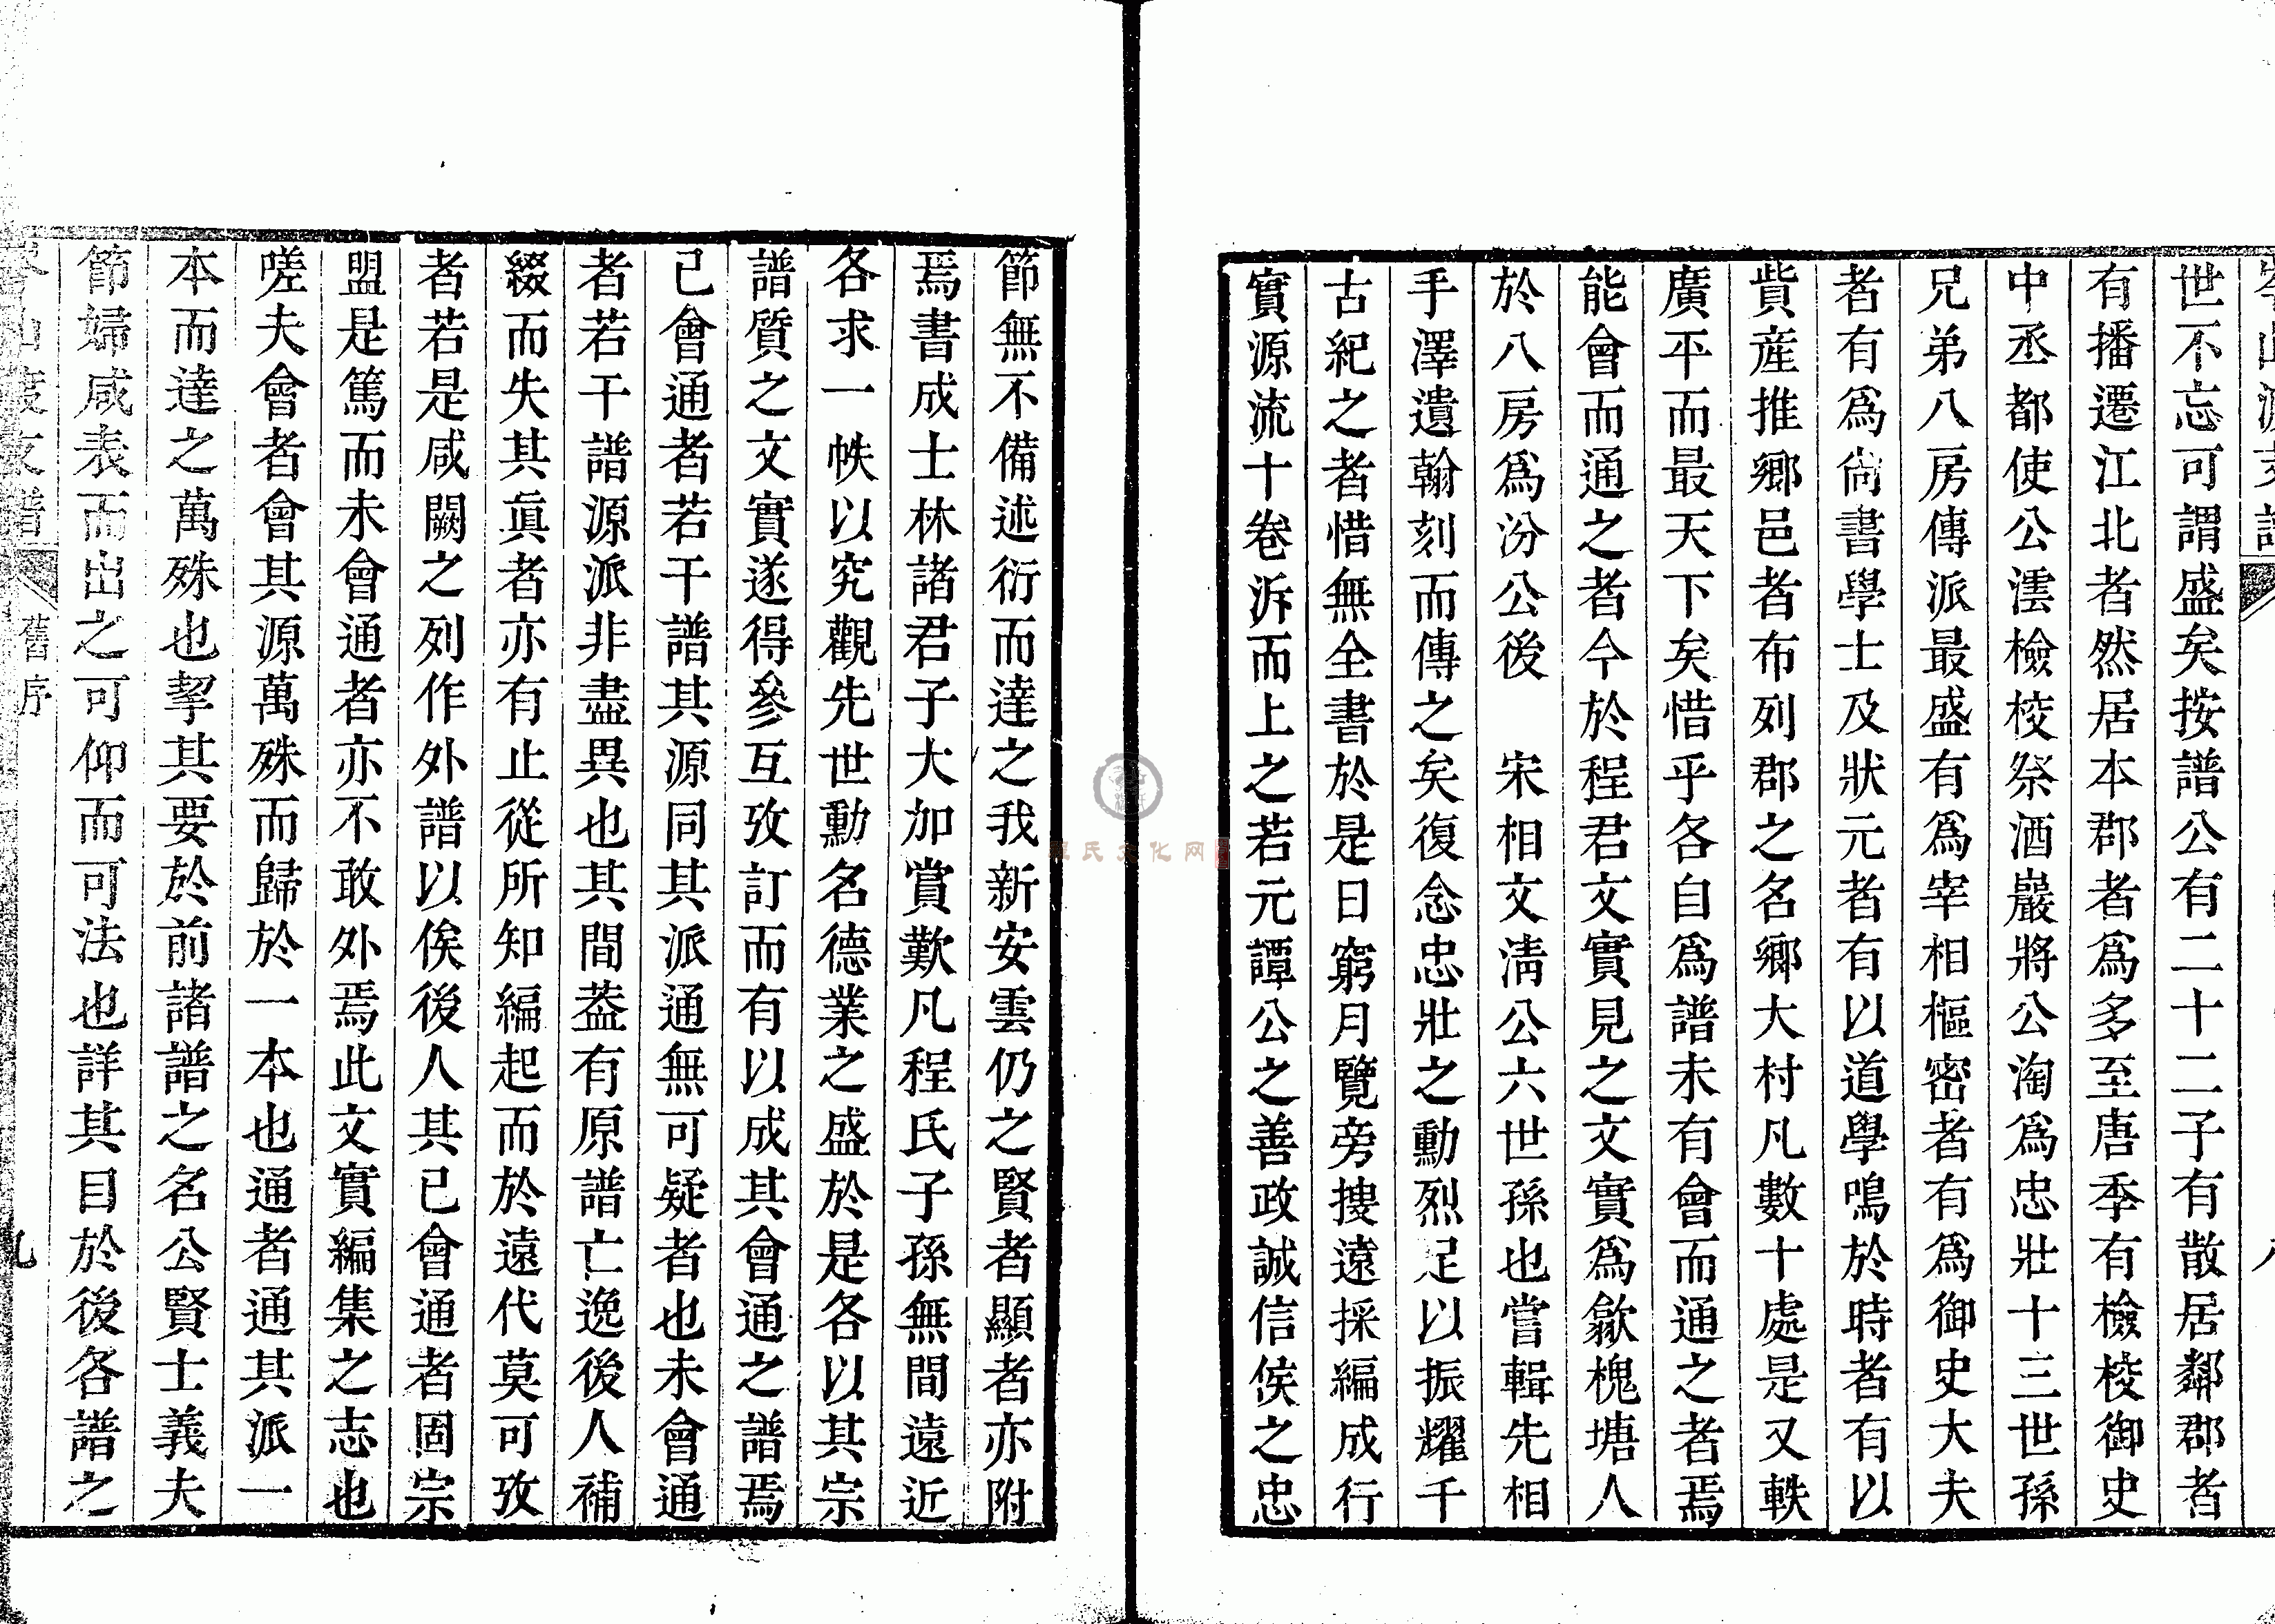 世不忘可謂盛矣按譜公有二十二子有散居鄰郡者
有播遷江北者然居本郡者為多至唐季有檢校御史
中丞都使公澐檢校祭酒巖將公淘為忠壯十三世孫
兄弟八房傳派最盛有為宰相樞密者有為御史大夫
者有為尚書學士及狀元者有以道學鳴於時者有以
貲產推鄉邑者布列郡之名鄉大村凡數十處是又軼
廣平而最天下矣惜乎各自為譜未有會而通之者焉
能會而通之者今於程君文實見之文實為歙槐塘人
於八房為汾公後　宋相文清公六世孫也嘗輯先相
手澤遺翰刻而傳之矣復念忠壯之勳烈足以振耀千
古紀之者惜無全書於是日窮月覽旁搜遠採編成行
實源流十卷泝而上之若元譚公之善政誠信侯之忠
節無不備述衍而達之我新安雲仍之賢者顯者亦附
焉書成士林諸君子大加賞歎凡程氏子孫無間遠近
各求一帙以究觀先世勳名德業之盛於是各以其宗
譜質之文實遂得參互攷訂而有以成其會通之譜焉
已會通者若干譜其源同其派通無可疑者也未會通
者若干譜源派非盡異也其間葢有原譜亡逸後人補
綴而失其眞者亦有止從所知編起而於遠代莫可攷
者若是咸闕之列作外譜以俟後人其已會通者固宗
盟是篤而未會通者亦不敢外焉此文實編集之志也
嗟夫會者會其源萬殊而歸於一本也通者通其派一
本而達之萬殊也挈其要於前諸譜之名公賢士義夫
節婦咸表而出之可仰而可法也詳其目於後各譜之
舊序
九